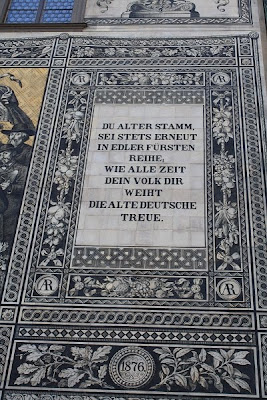 AR AR
DU ALTER STAMM,
SEI STETS ERNEUT
IN EDLER FÜRSTEN
REIHE,
WIE ALLE ZEIT
DEIN VOLK DIR
WEIHT
DIE ALTE DEUTSCHE
TREUE.
AR AR
1876.